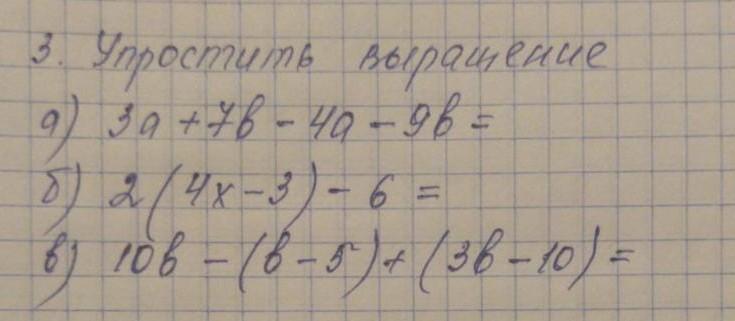 3. Упростить выращение
а) 3a + 7b - 4a - 9b =
б) 2(4x - 3) - 6 =
в) 10b - (b - 5) + (3b - 10) =